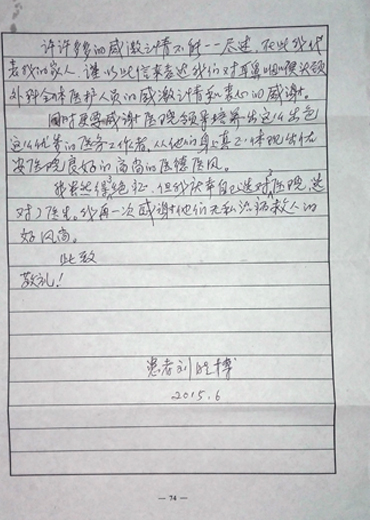 许许多多的感激之情不能一一尽述，在此我代
表我的家人，谨以此信来表达我们对耳鼻咽喉头颈
外科全体医护人员的感激之情和衷心的感谢。
同时更要感谢医院领导培养出这么出色
这么优秀的医务工作者，从他们身上真正体现出
医院良好的高尚的医德医风。
我虽然得绝症，但我庆幸自己选对医院，选
对了医生。我再一次感谢他们无私治病救人的
好风尚。
此致
敬礼！
患者刘胜博
2015.6
— 74 —